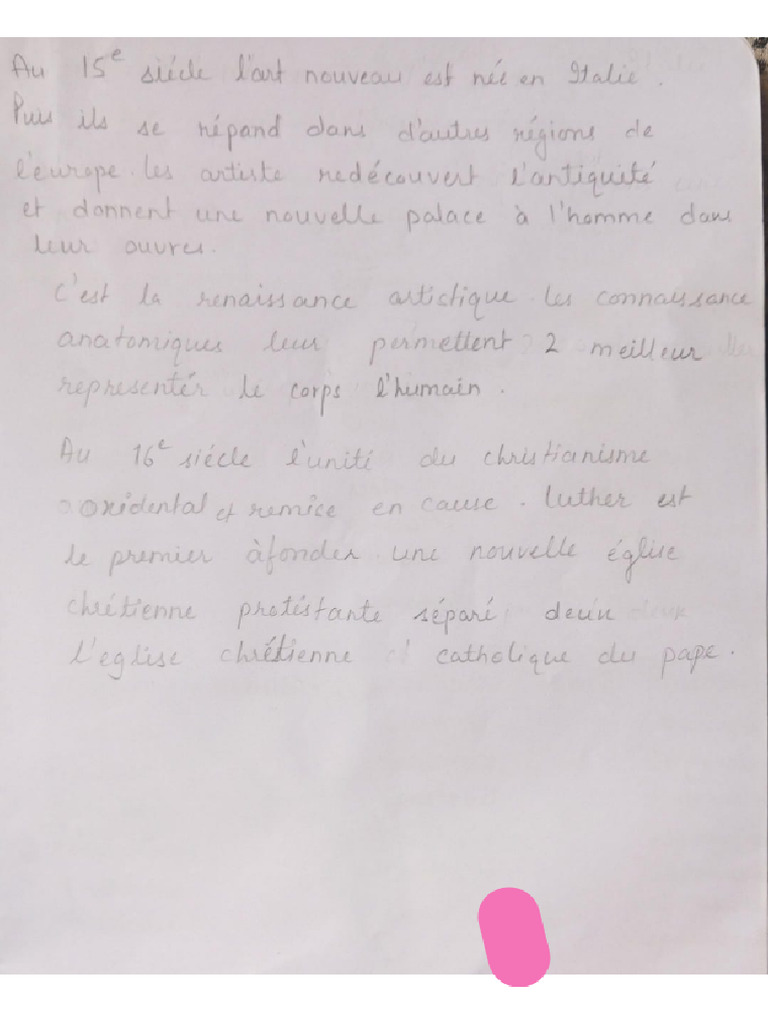 Au 15e siécle l'art nouveau est née en Italie.
Puis ils se répand dans d'autres régions de
l'europe. les artiste redécouvert l'antiquité
et donnent une nouvelle palace à l'homme dans
leur ouvres.
C'est la renaissance artistique les connaissance
anatomiques leur permettent 2 meilleur
représentér le corps l'humain.
Au 16e siécle l'unité du christianisme
oxidental et remice en cause. Luther est
le premier àfonder une nouvelle église
chrétienne protéstante séparé deun
l'eglise chrétienne catholique du pape.